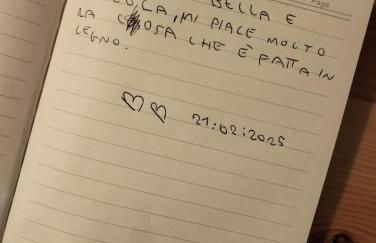 Page
BELLA E
LA, MI PIACE MOLTO
LA COSA CHE È FATTA IN
LEGNO.
21:02:2025